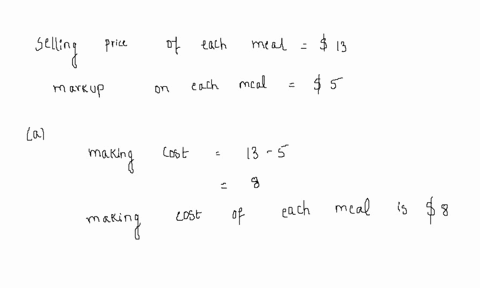 Selling price of each meal = $ 13
markup on each meal = $ 5
(a)
making cost = 13 - 5
= 8
making cost of each meal is $ 8